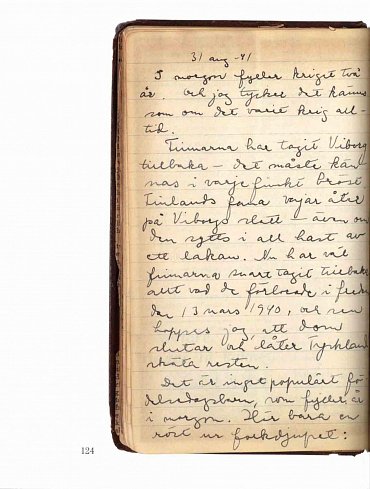 31 aug -41
I morgon fyller kriget två
år. Och jag tycker det känns
som om det varit krig all-
tid.
Finnarna har tagit Viborg
tillbaka – det måste kän-
nas i varje finskt bröst.
Finlands fana vajar åter
på Viborgs slott – även om
den sytts i all hast av
ett lakan. Nu har väl
finnarna snart tagit tillbaka
allt vad de förlorade i freden
den 13 mars 1940, och sen
hoppas jag att dom
slutar och låter Tyskland
sköta resten.
Det är inget populärt fö-
delsedagsbarn, som fyller år
i morgon. Här bara en
röst ur folkdjupet:
124